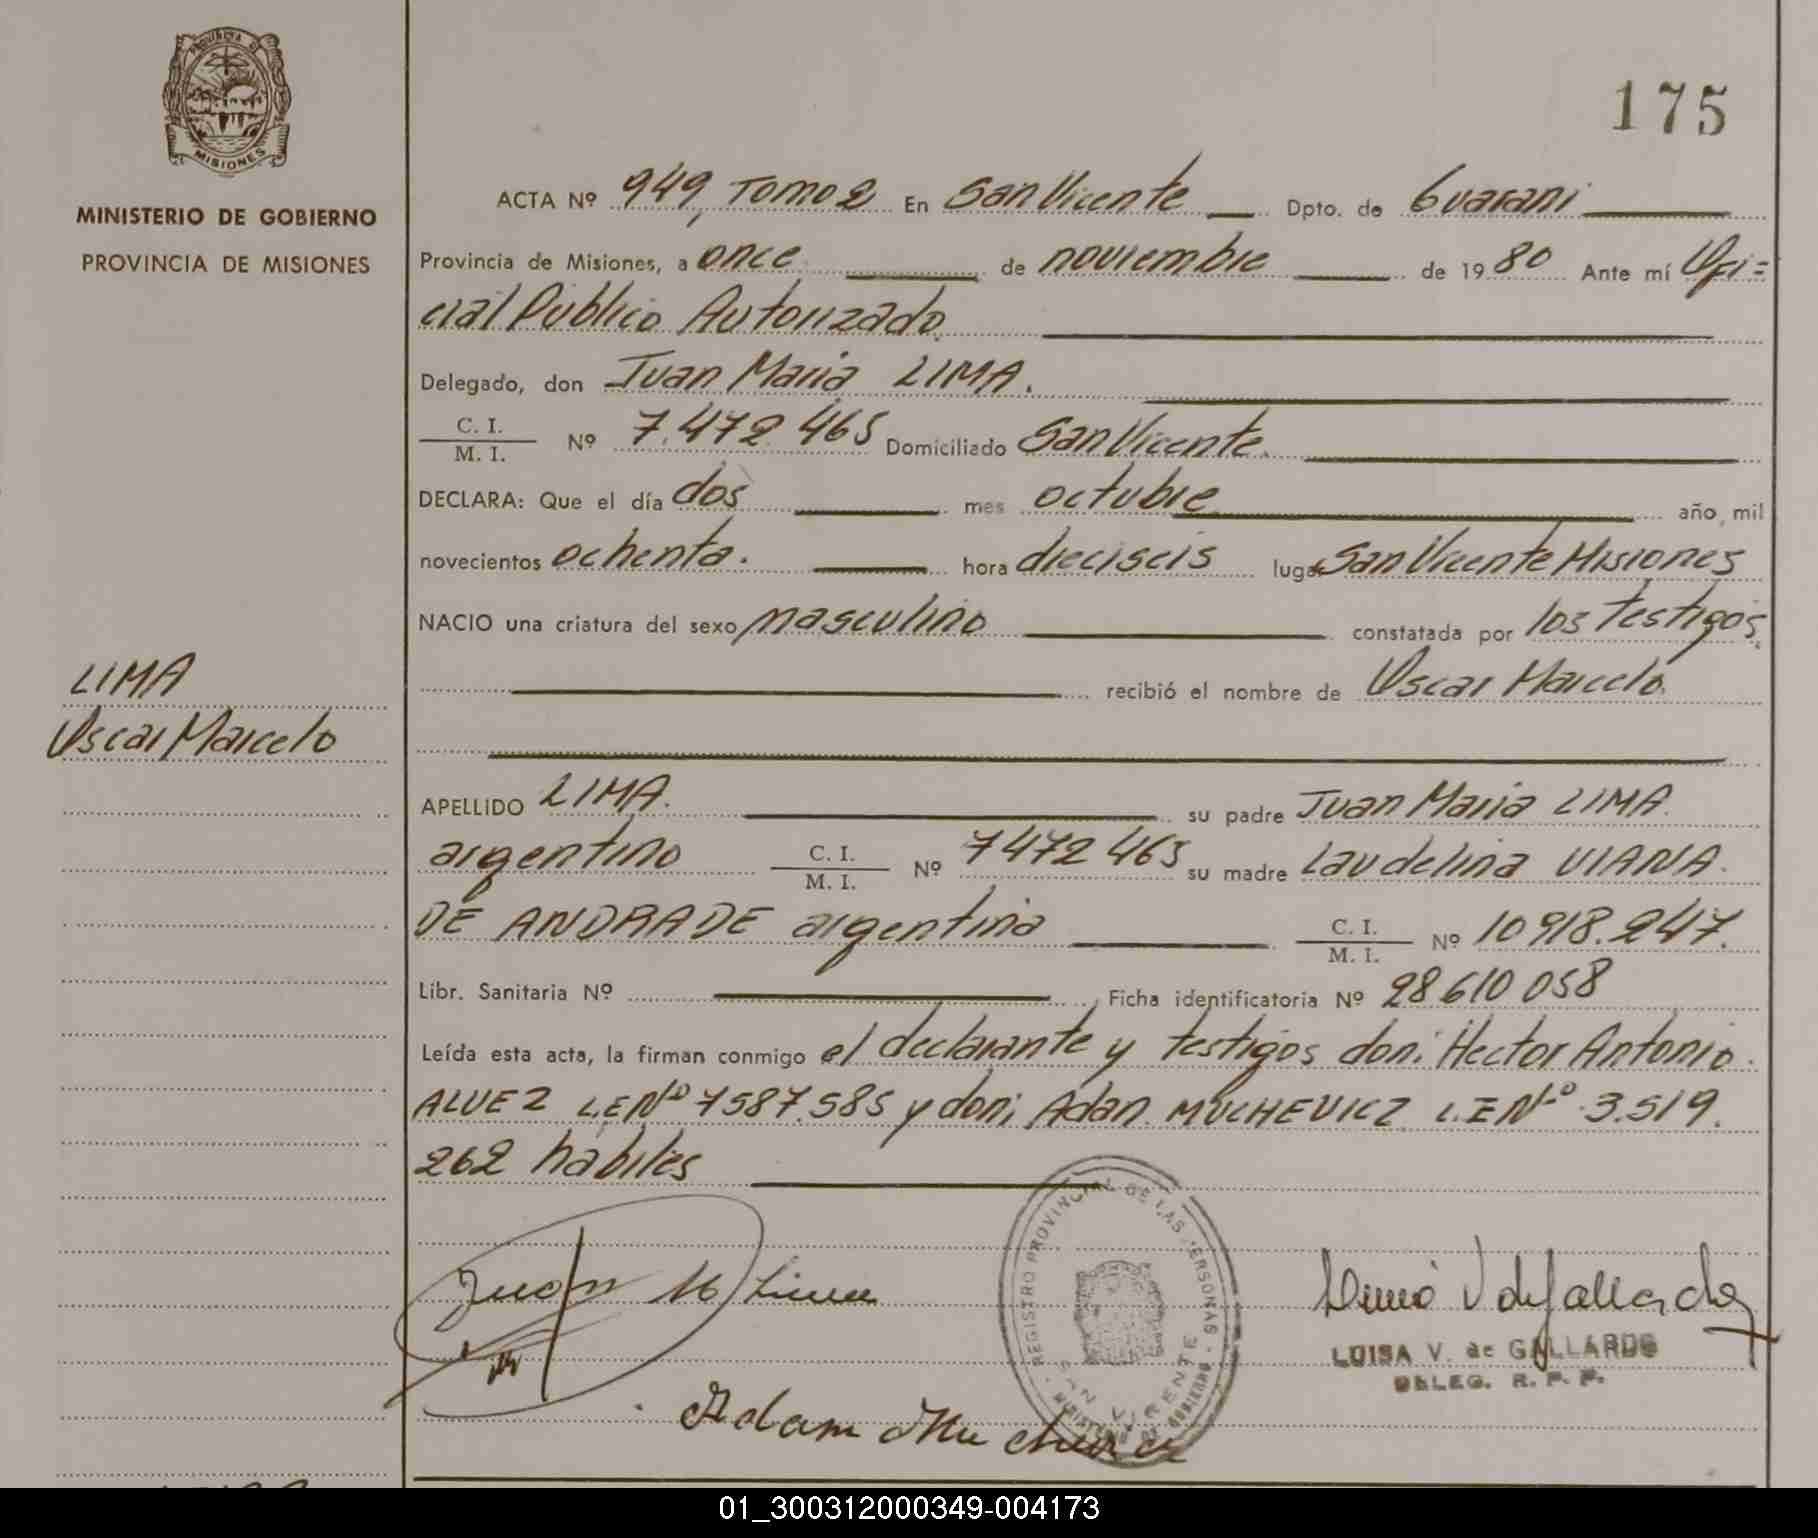 PROVINCIA DE
MISIONES
MINISTERIO DE GOBIERNO
PROVINCIA DE MISIONES
LIMA
Oscar Marcelo
175
ACTA Nº 949, Tomo 2 En San Vicente Dpto. de Guarani
Provincia de Misiones, a once de noviembre de 1980 Ante mí Ofi=
cial Público Autorizado
Delegado, don Juan Maria LIMA.
C. I. / M. I. Nº 7.472.465 Domiciliado San Vicente.
DECLARA: Que el día dos mes octubre año mil
novecientos ochenta. hora dieciseis lugar San Vicente Misiones
NACIO una criatura del sexo masculino constatada por los testigos,
recibió el nombre de Oscar Marcelo.
APELLIDO LIMA. su padre Juan Maria LIMA.
argentino C. I. / M. I. Nº 7472465 su madre Laudelina VIANA.
DE ANDRADE argentina C. I. / M. I. Nº 10918.247.
Libr. Sanitaria Nº Ficha identificatoria Nº 28610058
Leída esta acta, la firman conmigo el declarante y testigos don: Hector Antonio.
ALVEZ L.E Nº 7587.585 y don: Adan. MUCHEVICZ L.E Nº 3.519.
262 hábiles
Juan M Lima
REGISTRO PROVINCIAL DE LAS PERSONAS
SAN VICENTE
MINISTERIO DE GOBIERNO
V de Gallardo
LUISA V. de GALLARDO
DELEG. R. P. P.
Adam
01_300312000349-004173